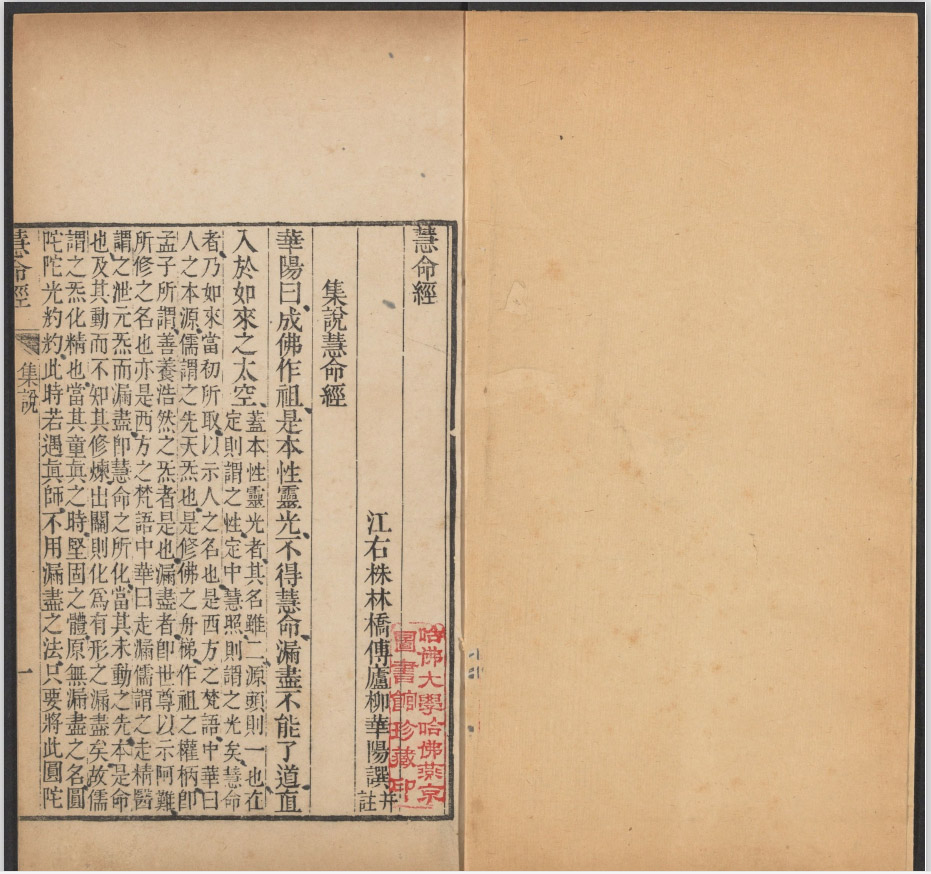 慧命經
江右株林橋傅廬柳華陽譔并註
集說慧命經
華陽曰成佛作祖是本性靈光不得慧命漏盡不能了道直
入於如來之太空
蓋本性靈光者其名雖二源頭則一也在
定則謂之性定中慧照則謂之光矣慧命
者乃如來當初所取以示人之名也是西方之梵語中華曰
人之本源儒謂之先天炁也是修佛之舟梯作祖之權柄卽
孟子所謂善養浩然之炁者是也漏盡者卽世尊以示阿難
所修之名也亦是西方之梵語中華曰走漏儒謂之走精醫
謂之泄元炁而漏盡卽慧命之所化當其未動之先本是命
也及其動而不知其修煉出關則化爲有形之漏盡矣故儒
謂之炁化精也當其童眞之時堅固之體原無漏盡之名圓
陀陀光灼灼此時若遇眞師不用漏盡之法只要將此圓陀
慧命經
集說
一
哈佛大學哈佛燕京
圖書館珍藏印